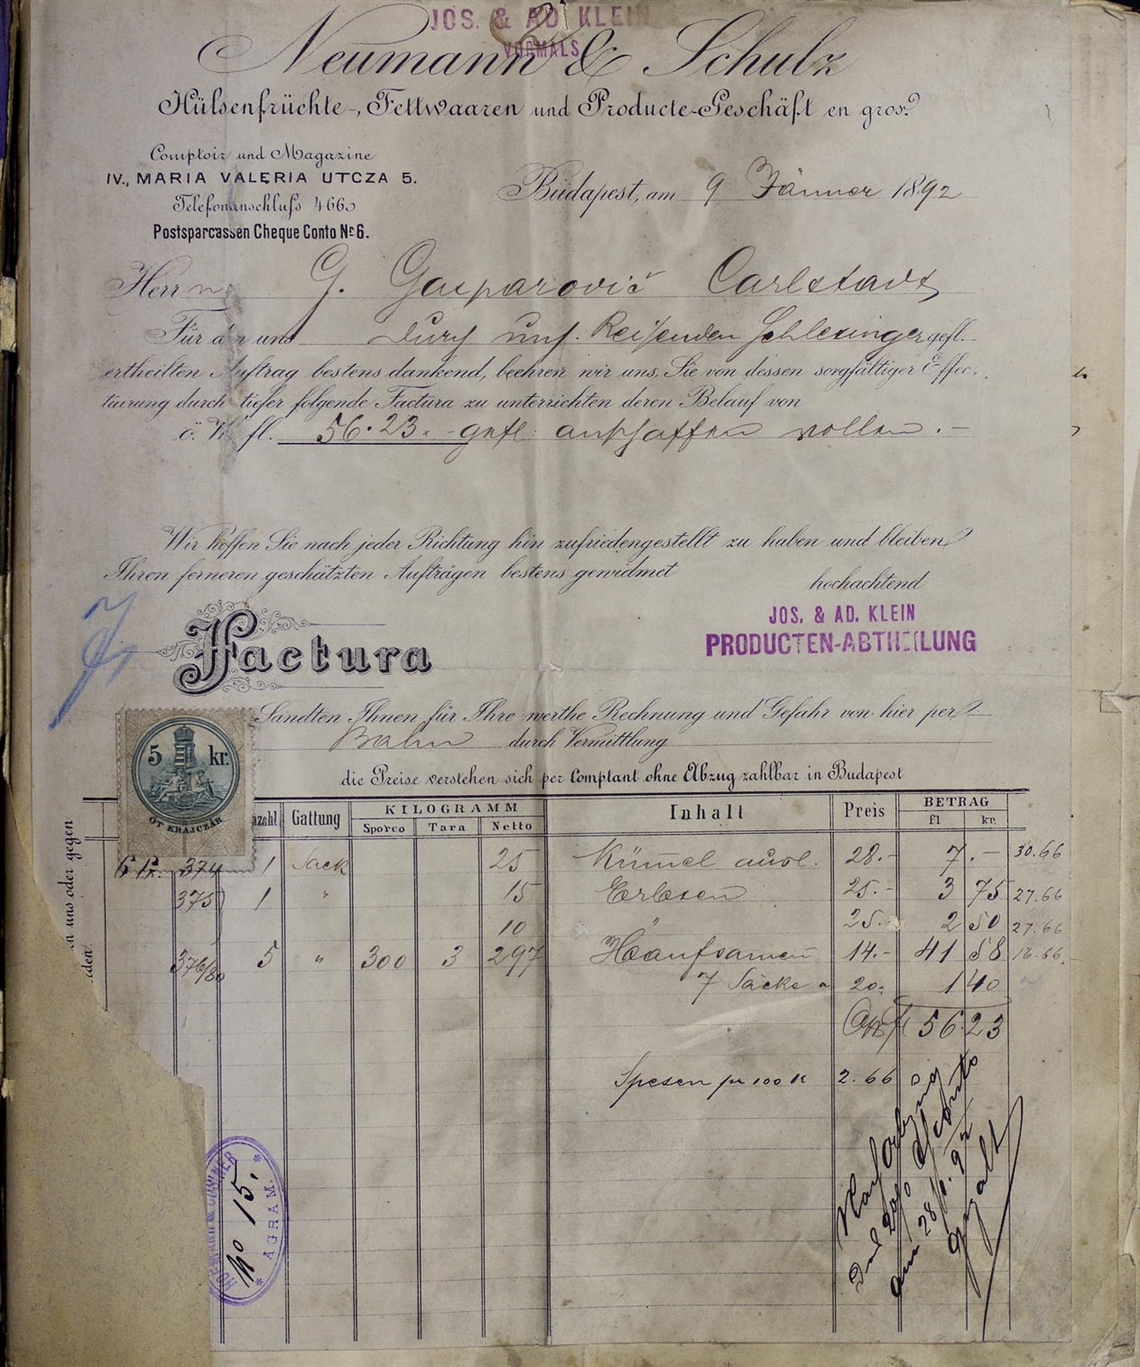 JOS. & AD. KLEIN
VORMALS
Neumann & Schulz
Hülsenfrüchte-, Fettwaaren und Producte-Geschäft en gros.
Comptoir und Magazine
IV., MARIA VALERIA UTCZA 5.
Telefonanschluss 466
Postsparcassen Cheque Conto Nr 6.
Budapest, am 9 Jänner 1892
Herrn G. Gasparović Carlstadt
Für den uns durch uns. Reisenden Schlesinger gefl.
ertheilten Auftrag bestens dankend, beehren wir uns, Sie von dessen sorgfältiger Effec-
tuirung durch tiefer folgende Factura zu unterrichten deren Belauf von
ö. W. fl. 56.23. gefl. anschaffen wollen.
Wir hoffen Sie nach jeder Richtung hin zufriedengestellt zu haben und bleiben
Ihren ferneren geschätzten Aufträgen bestens gewidmet
hochachtend
JOS. & AD. KLEIN
PRODUCTEN-ABTHEILUNG
Factura
Sandten Ihnen für Ihre werthe Rechnung und Gefahr von hier per
Bahn durch Vermittlung
die Preise verstehen sich per Comptant ohne Abzug zahlbar in Budapest
5 kr.
ÖT KRAJCZÁR
nzahl Gattung KILOGRAMM Inhalt Preis BETRAG
Sporco Tara Netto fl kr.
374 1 Sack 25 Kümel 28.- 7.- 30.66
375 1 " 15 Erbsen 25.- 3 75 27.66
10 " 25.- 2 50 27.66
376/80 5 " 300 3 297 Haanfsamen 14.- 41 58 16.66
7 Säcke a 20. 1 40
fl 56 23
Spesen pr 100 K 2.66
en uns oder gegen
den
No 15.
AGRAM.
am 28/ 92